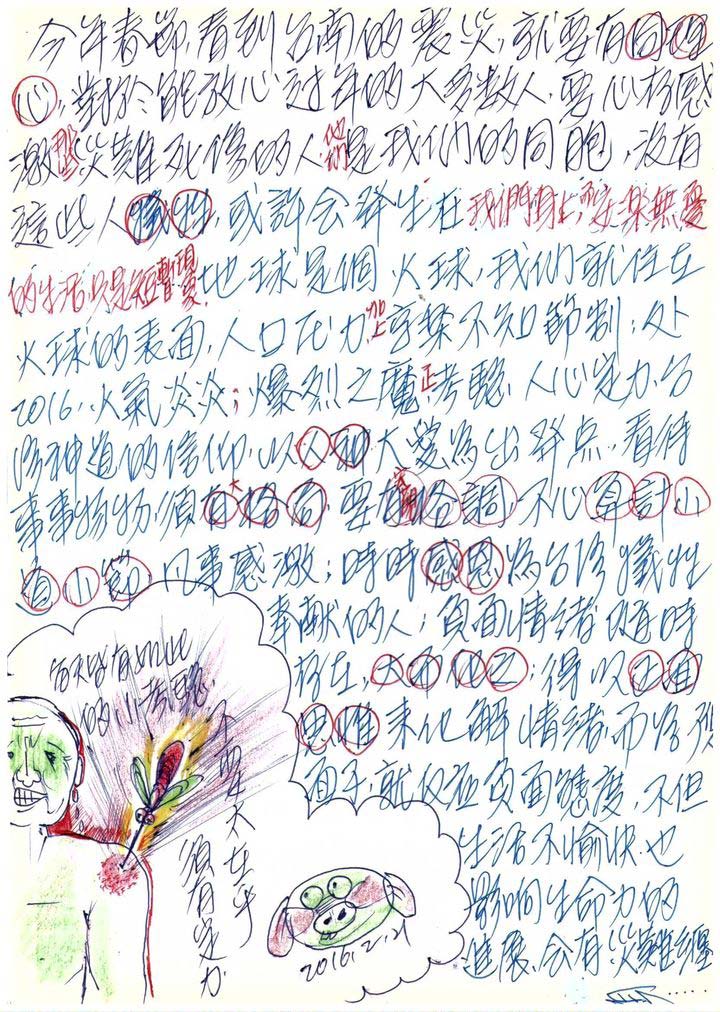 今年春節,看到台南的震災,就要有同理
心,對於能放心过年的大多數人,要心存感
激那些災難死傷的人,他們是我們的同胞,沒有
這些人犧牲,或許会發生在我們身上,安樂無憂
的生活只是短暫現象,地球是個火球,我們就住在
火球的表面,人口压力加上享樂不知節制;处
2016,火氣炎炎;爆烈之魔正考驗,人心定力,台
神道的信仰,以人和大愛為出發点,看待
事事物物,須有大格局,要有協調,不心算計小
道小節,凡事感激;時時感恩為台灣犧牲
奉献的人;負面情緒随時
存在,
思維来化解情緒,而
就仅症負面態度,不但
生活不愉快也
影响生命力的
進展,会有災難纏
.....
每天皆有如此
的小考驗,
不要太在乎
須有定力
2016.2.21